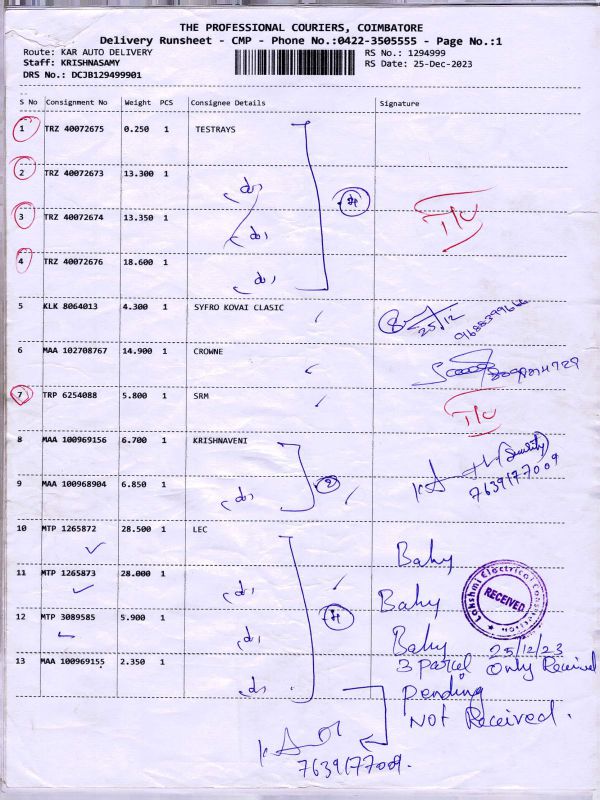 THE PROFESSIONAL COURIERS, COIMBATORE
Delivery Runsheet - CMP - Phone No.:0422-3505555 - Page No.:1
Route: KAR AUTO DELIVERY
RS No.: 1294999
Staff: KRISHNASAMY
RS Date: 25-Dec-2023
DRS No.: DCJB129499901
S No Consignment No Weight PCS Consignee Details Signature
1 TRZ 40072675 0.250 1 TESTRAYS
2 TRZ 40072673 13.300 1
3 TRZ 40072674 13.350 1
4 TRZ 40072676 18.600 1
5 KLK 8064013 4.300 1 SYFRO KOVAI CLASIC
25/12
6 MAA 102708767 14.900 1 CROWNE
7 TRP 6254088 5.800 1 SRM
8 MAA 100969156 6.700 1 KRISHNAVENI
(Security)
7639177009
9 MAA 100968904 6.850 1
10 MTP 1265872 28.500 1 LEC
Baby
11 MTP 1265873 28.000 1
Baby
Lakshmi Electrical
RECEIVED
12 MTP 3089585 5.900 1
Baby 25/12/23
3 parcel Only Received
13 MAA 100969155 2.350 1
Pending
Not Received.
7639177009.